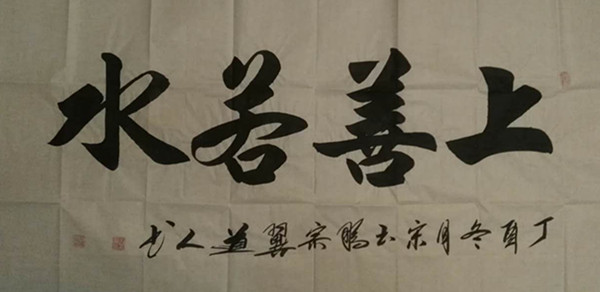 上善若水
丁酉冬月宗玉鹏宗翼道人书